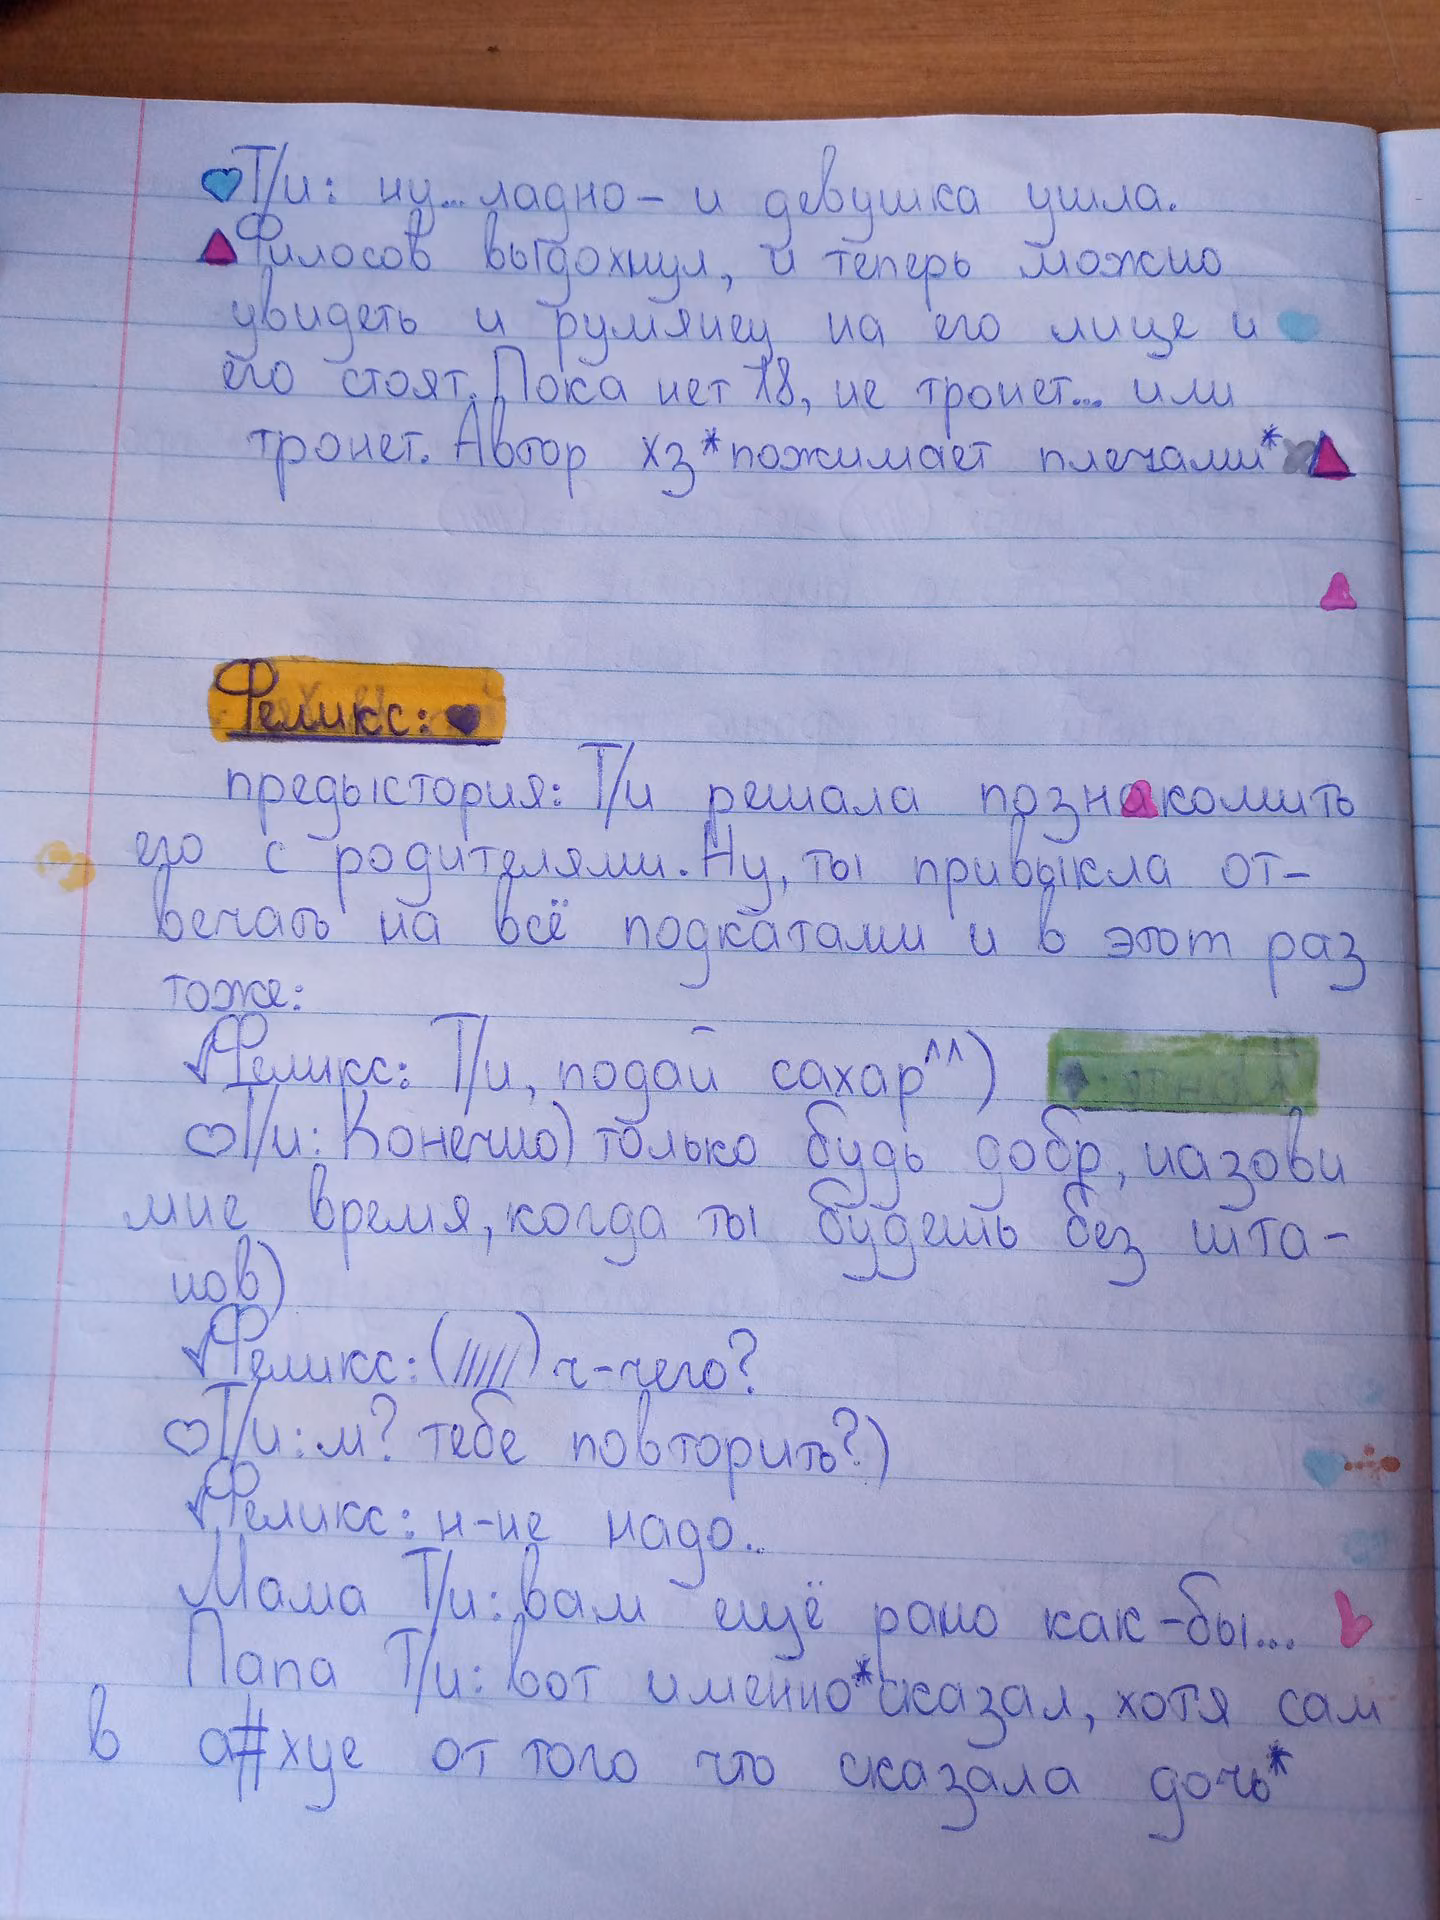 Т/и: ну... ладно – и девушка ушла.
Филосов выдохнул, и теперь можно
увидеть и румянец на его лице и
его стоят. Пока нет 18, не тронет... или
тронет. Автор хз *пожимает плечами*
Феликс:
предыстория: Т/и решала познакомить
его с родителями. Ну, ты привыкла от-
вечать на всё подкатами и в этот раз
тоже:
Феликс: Т/и, подай сахар^^)
Т/и: Конечно) только будь добр, назови
мне время, когда ты будешь без шта-
нов)
Феликс: (/////) ч-чего?
Т/и: м? тебе повторить?)
Феликс: н-не надо..
Мама Т/и: вам ещё рано как-бы...
Папа Т/и: вот именно *сказал, хотя сам
в а#хуе от того что сказала дочь*